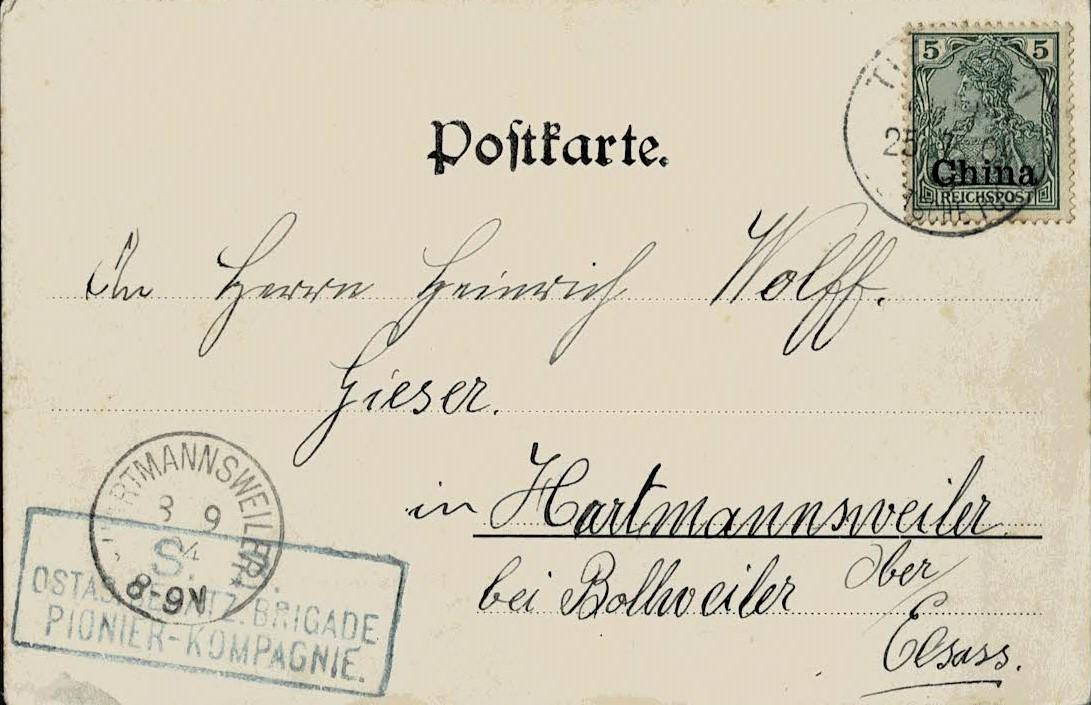 5 5
China
REICHSPOST
25
Postkarte.
An Herrn Heinrich Wolff.
Gieser.
in Hartmannsweiler
bei Bollweiler Ober
Elsass.
HARTMANNSWEILER
3 9
4
8-9N
S. B.
OSTAS. BESATZ. BRIGADE
PIONIER-KOMPAGNIE.